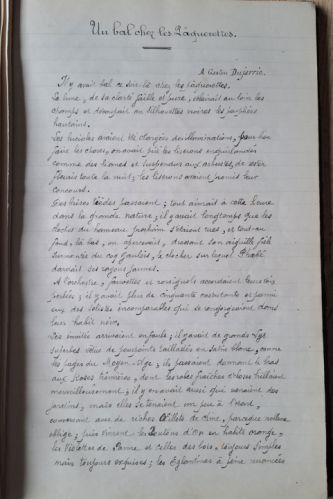 Un bal chez les Pâquerettes.
A Gaston Dujarric.
Il y avait bal ce soir-là chez les pâquerettes.
La lune, de sa clarté faible et pure, éclairait au loin les
champs et découpait en silhouettes noires les peupliers
hautains.
Les lucioles avaient été chargées des illuminations, pour bien
faire les choses, on avait prié les liserons enguirlandés
comme des lianes et suspendus aux arbustes, de rester
fleuris toute la nuit; les liserons avaient promis leur
concours.
Des brises tièdes passaient; tout aimait à cette heure
dans la grande nature; il y avait longtemps que les
cloches du hameau prochain s'étaient tues, et tout au
fond, là-bas, on apercevait, dressant son aiguille fine
surmontée du coq gaulois, le clocher sur lequel Phébé
dardait ses rayons jaunes.
A l'orchestre, fauvettes et rossignols accordaient leurs voix
perlées; il y avait plus de cinquante exécutants et parmi
eux des solistes incomparables qui se rengorgeaient dans
leur habit neuf.
Les invités arrivaient en foule; il y avait de grands Lys
superbes vêtus de pourpoints tailladés en satin blanc, comme
les pages du Moyen-Age; ils passaient donnant le bras
aux Roses trémières, dont les robes fraîches écloses brillaient
merveilleusement; il y en avait aussi qui venaient des
jardins, mais elles se tenaient un peu à l'écart,
conversant avec de riches Œillets de Chine, parce que noblesse
oblige; puis vinrent les Boutons d'Or en habits orange,
les Violettes de Parme et celles des bois, toujours simples
mais toujours exquises; les Eglantines à peine nuancées